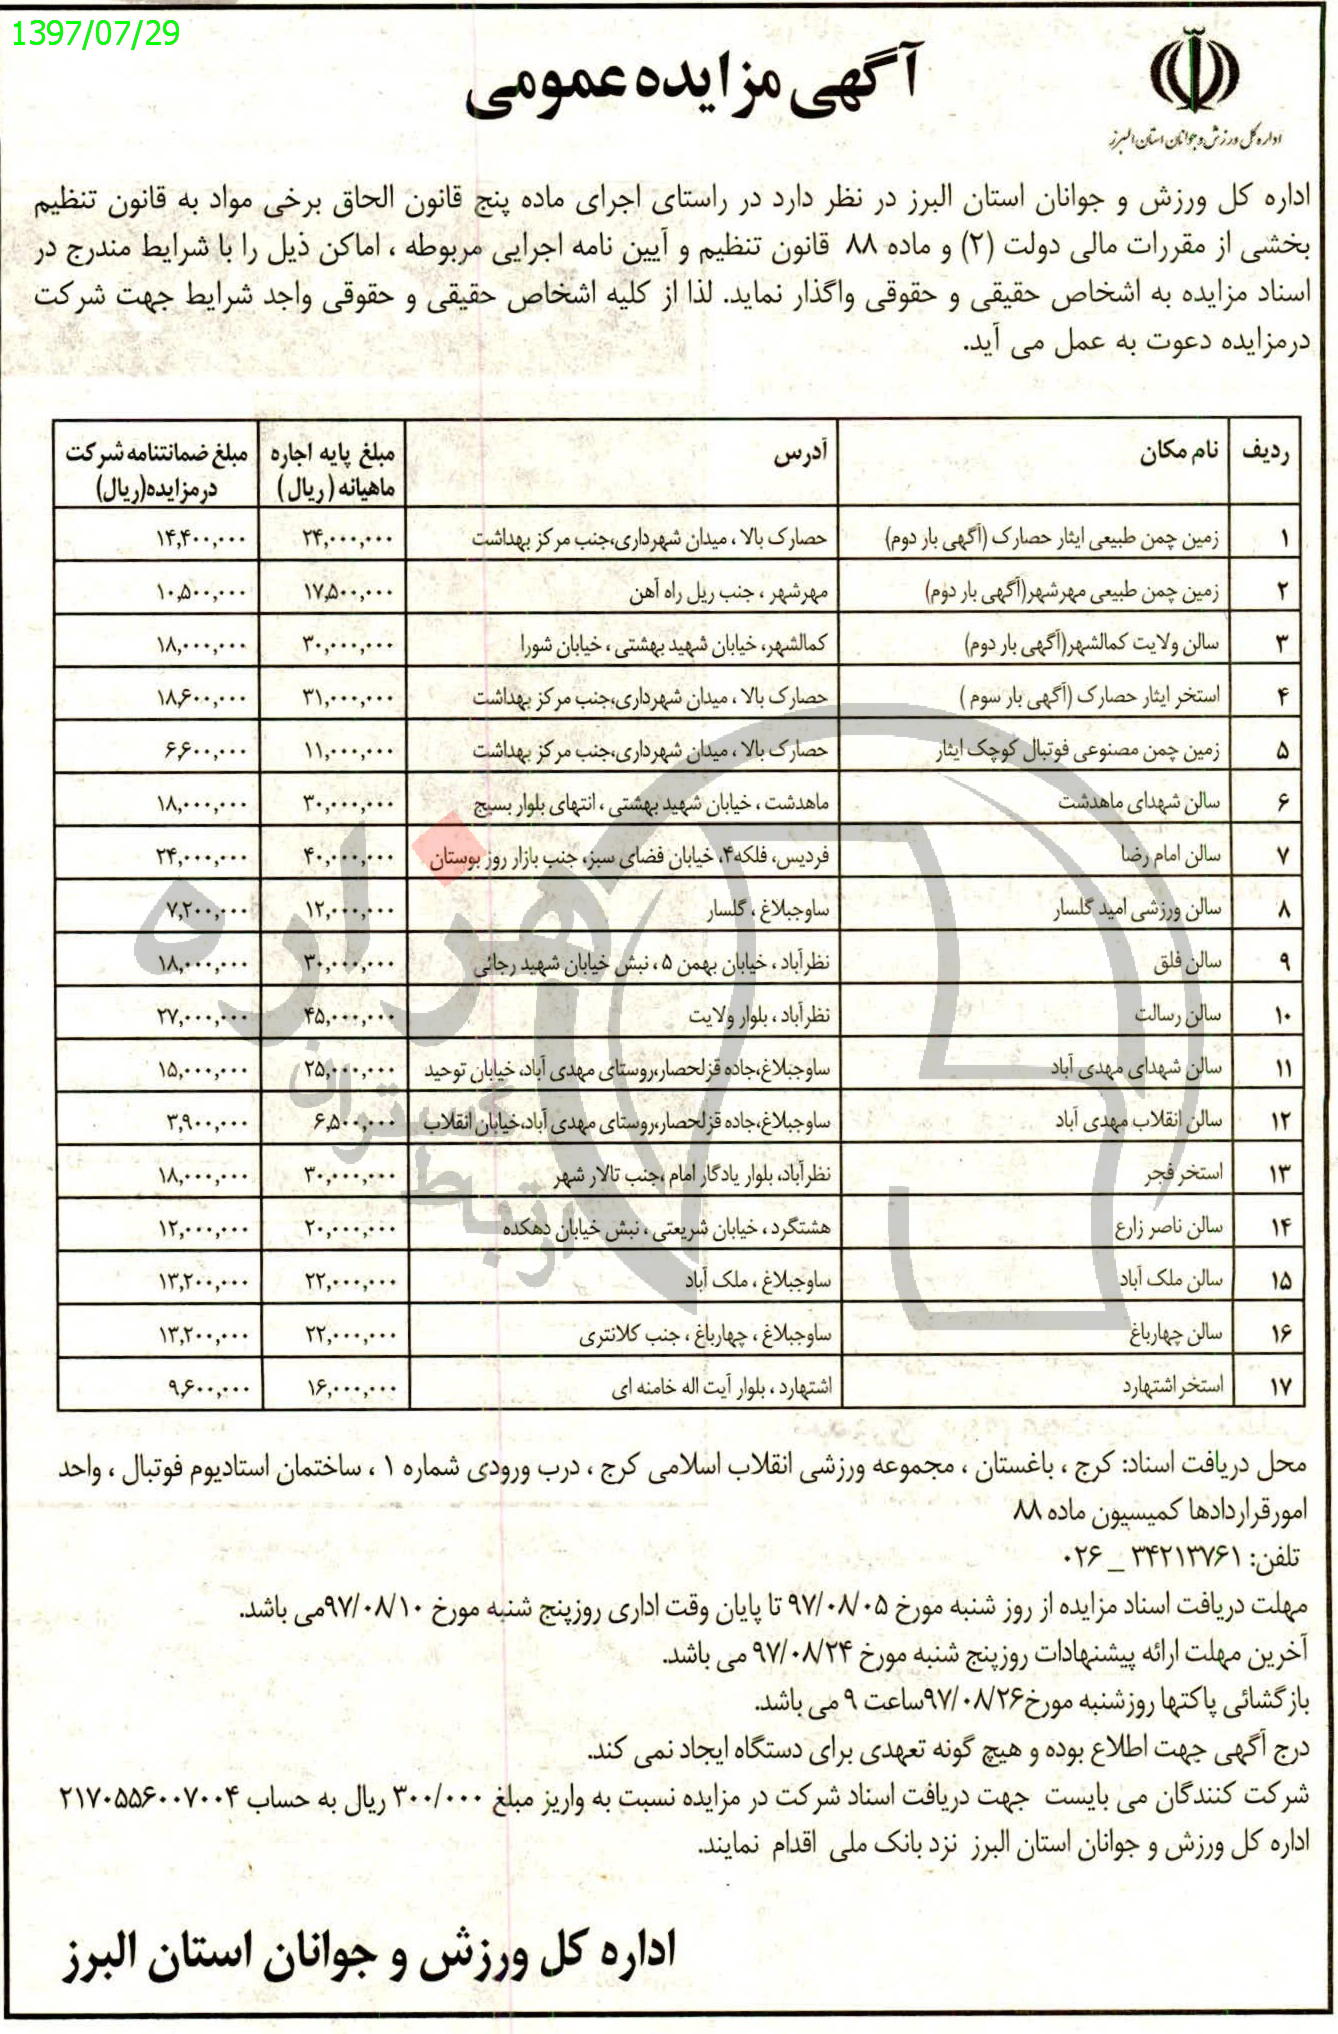 1397/07/29
آگهی مزایده عمومی
اداره کل ورزش و جوانان استان البرز
اداره کل ورزش و جوانان استان البرز در نظر دارد در راستای اجرای ماده پنج قانون الحاق برخی مواد به قانون تنظیم
بخشی از مقررات مالی دولت (۲) و ماده ۸۸ قانون تنظیم و آیین نامه اجرایی مربوطه ، اماکن ذیل را با شرایط مندرج در
اسناد مزایده به اشخاص حقیقی و حقوقی واگذار نماید. لذا از کلیه اشخاص حقیقی و حقوقی واجد شرایط جهت شرکت
درمزایده دعوت به عمل می آید.
ردیف نام مکان آدرس مبلغ پایه اجاره ماهیانه (ریال) مبلغ ضمانتنامه شرکت درمزایده(ریال)
۱ زمین چمن طبیعی ایثار حصارک (آگهی بار دوم) حصارک بالا ، میدان شهرداری،جنب مرکز بهداشت ۲۴,۰۰۰,۰۰۰ ۱۴,۴۰۰,۰۰۰
۲ زمین چمن طبیعی مهرشهر(آگهی بار دوم) مهرشهر ، جنب ریل راه آهن ۱۷,۵۰۰,۰۰۰ ۱۰,۵۰۰,۰۰۰
۳ سالن ولایت کمالشهر(آگهی بار دوم) کمالشهر، خیابان شهید بهشتی ، خیابان شورا ۳۰,۰۰۰,۰۰۰ ۱۸,۰۰۰,۰۰۰
۴ استخر ایثار حصارک (آگهی بار سوم ) حصارک بالا ، میدان شهرداری،جنب مرکز بهداشت ۳۱,۰۰۰,۰۰۰ ۱۸,۶۰۰,۰۰۰
۵ زمین چمن مصنوعی فوتبال کوچک ایثار حصارک بالا ، میدان شهرداری،جنب مرکز بهداشت ۱۱,۰۰۰,۰۰۰ ۶,۶۰۰,۰۰۰
۶ سالن شهدای ماهدشت ماهدشت ، خیابان شهید بهشتی ، انتهای بلوار بسیج ۳۰,۰۰۰,۰۰۰ ۱۸,۰۰۰,۰۰۰
۷ سالن امام رضا فردیس، فلکه۴، خیابان فضای سبز، جنب بازار روز بوستان ۴۰,۰۰۰,۰۰۰ ۲۴,۰۰۰,۰۰۰
۸ سالن ورزشی امید گلسار ساوجبلاغ ، گلسار ۱۲,۰۰۰,۰۰۰ ۷,۲۰۰,۰۰۰
۹ سالن فلق نظرآباد ، خیابان بهمن ۵ ، نبش خیابان شهید رجائی ۳۰,۰۰۰,۰۰۰ ۱۸,۰۰۰,۰۰۰
۱۰ سالن رسالت نظرآباد ، بلوار ولایت ۴۵,۰۰۰,۰۰۰ ۲۷,۰۰۰,۰۰۰
۱۱ سالن شهدای مهدی آباد ساوجبلاغ،جاده قزلحصار،روستای مهدی آباد، خیابان توحید ۲۵,۰۰۰,۰۰۰ ۱۵,۰۰۰,۰۰۰
۱۲ سالن انقلاب مهدی آباد ساوجبلاغ،جاده قزلحصار،روستای مهدی آباد،خیابان انقلاب ۶,۵۰۰,۰۰۰ ۳,۹۰۰,۰۰۰
۱۳ استخر فجر نظرآباد، بلوار یادگار امام ،جنب تالار شهر ۳۰,۰۰۰,۰۰۰ ۱۸,۰۰۰,۰۰۰
۱۴ سالن ناصر زارع هشتگرد ، خیابان شریعتی ، نبش خیابان دهکده ۲۰,۰۰۰,۰۰۰ ۱۲,۰۰۰,۰۰۰
۱۵ سالن ملک آباد ساوجبلاغ ، ملک آباد ۲۲,۰۰۰,۰۰۰ ۱۳,۲۰۰,۰۰۰
۱۶ سالن چهارباغ ساوجبلاغ ، چهارباغ ، جنب کلانتری ۲۲,۰۰۰,۰۰۰ ۱۳,۲۰۰,۰۰۰
۱۷ استخر اشتهارد اشتهارد ، بلوار آیت اله خامنه ای ۱۶,۰۰۰,۰۰۰ ۹,۶۰۰,۰۰۰
هزاره
ارتباط گستران
محل دریافت اسناد: کرج ، باغستان ، مجموعه ورزشی انقلاب اسلامی کرج ، درب ورودی شماره ۱ ، ساختمان استادیوم فوتبال ، واحد
امورقراردادها کمیسیون ماده ۸۸
تلفن: ۳۴۲۱۳۷۶۱ _ ۰۲۶
مهلت دریافت اسناد مزایده از روز شنبه مورخ ۹۷/۰۸/۰۵ تا پایان وقت اداری روزپنج شنبه مورخ ۹۷/۰۸/۱۰می باشد.
آخرین مهلت ارائه پیشنهادات روزپنج شنبه مورخ ۹۷/۰۸/۲۴ می باشد.
بازگشائی پاکتها روزشنبه مورخ۹۷/۰۸/۲۶ساعت ۹ می باشد.
درج آگهی جهت اطلاع بوده و هیچ گونه تعهدی برای دستگاه ایجاد نمی کند.
شرکت کنندگان می بایست جهت دریافت اسناد شرکت در مزایده نسبت به واریز مبلغ ۳۰۰/۰۰۰ ریال به حساب ۲۱۷۰۵۵۶۰۰۷۰۰۴
اداره کل ورزش و جوانان استان البرز نزد بانک ملی اقدام نمایند.
اداره کل ورزش و جوانان استان البرز